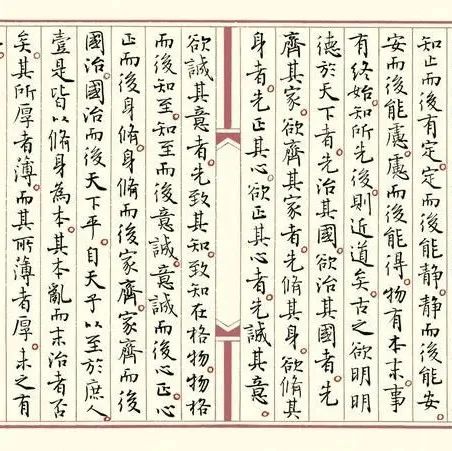 知止而後有定。定而後能靜。靜而後能安。
安而後能慮。慮而後能得。物有本末。事
有終始。知所先後。則近道矣。古之欲明明
德於天下者。先治其國。欲治其國者。先
齊其家。欲齊其家者。先脩其身。欲脩其
身者。先正其心。欲正其心者。先誠其意。
欲誠其意者。先致其知。致知在格物。物格
而後知至。知至而後意誠。意誠而後心正。心
正而後身脩。身脩而後家齊。家齊而後
國治。國治而後天下平。自天子以至於庶人。
壹是皆以脩身為本。其本亂而末治者否
矣。其所厚者薄。而其所薄者厚。未之有